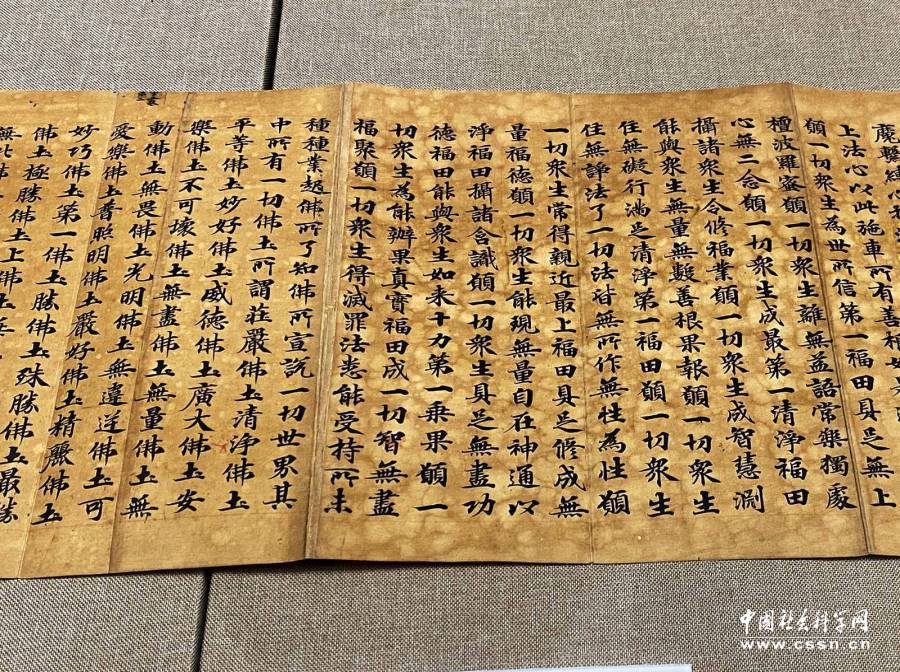 繫縛心
上法心以此施車所有善根如是
願一切眾生為世所信第一福田具足無上
檀波羅蜜願一切眾生離無益語常樂獨處
心無二念願一切眾生成最第一清淨福田
攝諸眾生令修福業願一切眾生成智慧淵
能與眾生無量無數善根果報願一切眾生
住無礙行滿足清淨第一福田願一切眾生
住無諍法了一切法皆無所作無性為性願
一切眾生常得親近最上福田具足修成無
量福德願一切眾生能現無量自在神通以
淨福田攝諸含識願一切眾生具足無盡功
德福田能與眾生如來十力第一乘果願一
切眾生為能辦果真實福田成一切智無盡
福聚願一切眾生得滅罪法悉能受持所未
種種業起佛所了知佛所宣說一切世界其
中所有一切佛土所謂莊嚴佛土清淨佛土
平等佛土妙好佛土威德佛土廣大佛土安
樂佛土不可壞佛土無盡佛土無量佛土無
動佛土無畏佛土光明佛土無違逆佛土可
愛樂佛土普照明佛土嚴好佛土精麗佛土
妙巧佛土第一佛土勝佛土殊勝佛土最勝
佛土極勝佛土上佛土無
無比佛
中国社会科学网
www.cssn.cn